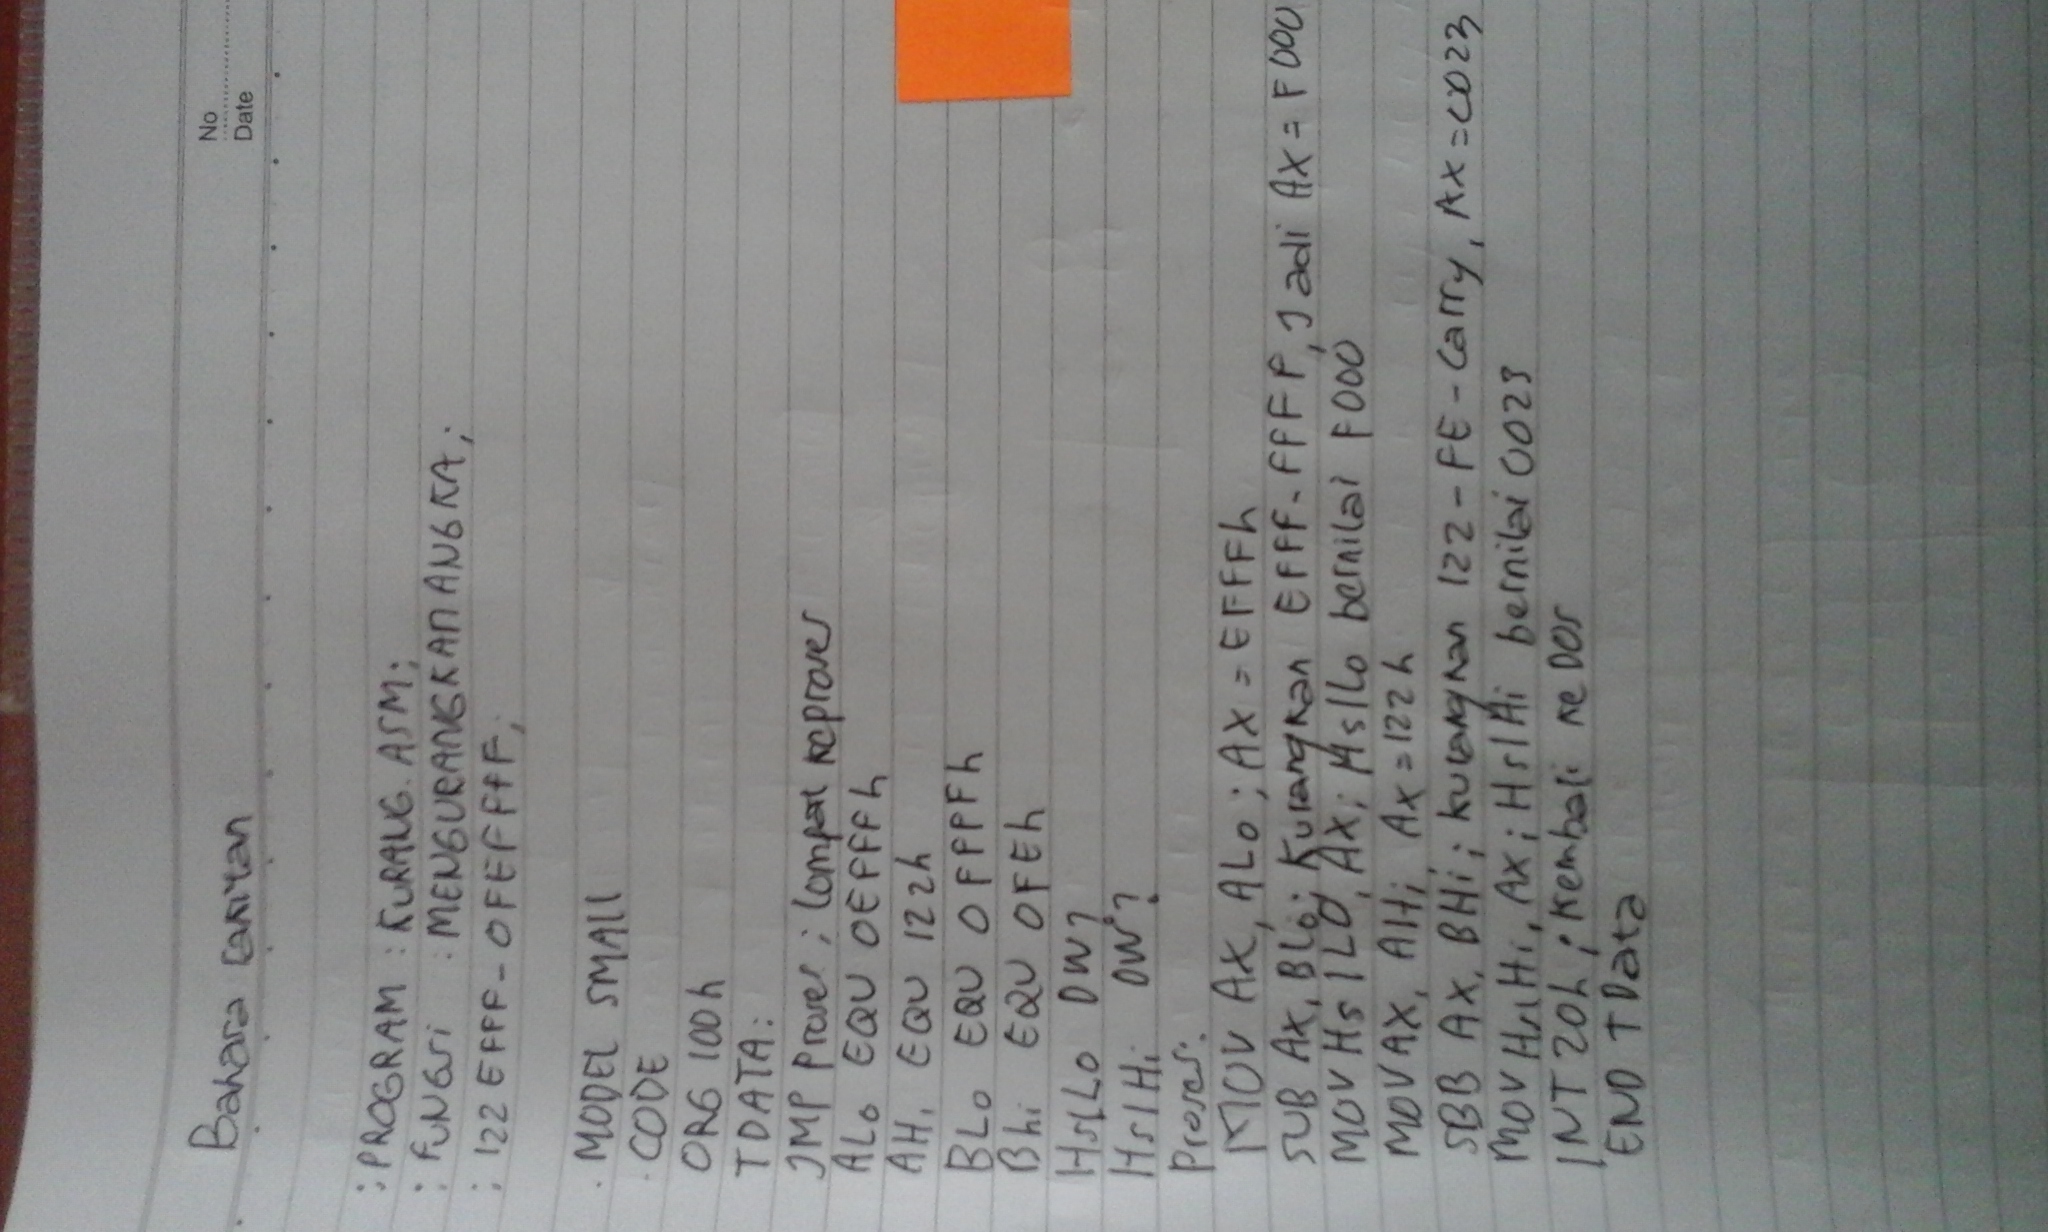 Bahasa rakitan
No
Date
; PROGRAM : KURANG. ASM;
; FUNGSi : MENGURANGKAN ANGKA;
; 122 EFFF - OFEFFFF;
. MODEL SMALL
. CODE
ORG 100h
TDATA:
JMP Proses ; lompat keproses
ALo EQU 0EFFFh
AHi EQU 122h
BLo EQU 0FFFFh
Bhi EQU 0FEh
HslLo DW?
HslHi DW?
Proses:
MOV AX, ALo ; AX = EFFFh
SUB AX, BLo; Kurangkan EFFF-FFFF, Jadi AX = F000
MOV HslLO, AX; HslLo bernilai F000
MOV AX, AHi, AX = 122h
SBB AX, BHi ; kurangkan 122 - FE - carry, AX = 0023
MOV HslHi, AX ; HslHi bernilai 0023
INT 20h ; Kembali ke DOS
END TData